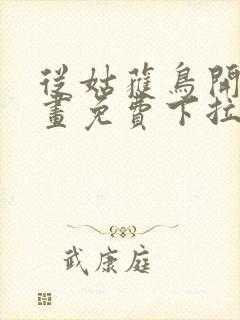 從姑蒦鳥開
畫免費下拉
武康庭